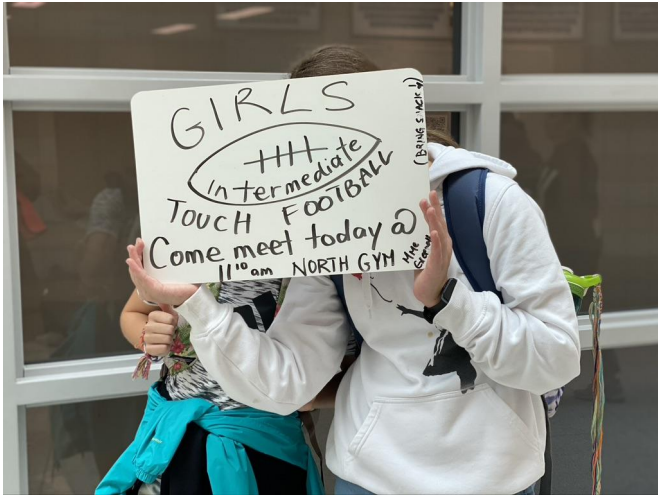 GIRLS
Intermediate
TOUCH FOOTBALL
Come meet today @
11:10 am NORTH GYM
Mme
(BRING